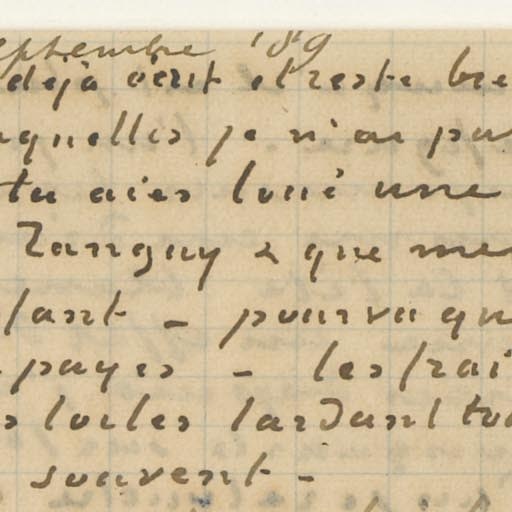 eptembre 189
déjà écrit et reste bie
aquelles je n'ai pas
tu aies loué une
Tanguy & que me
tant – pourvu qu
payes – les frai
s toiles tardant to
souvent –